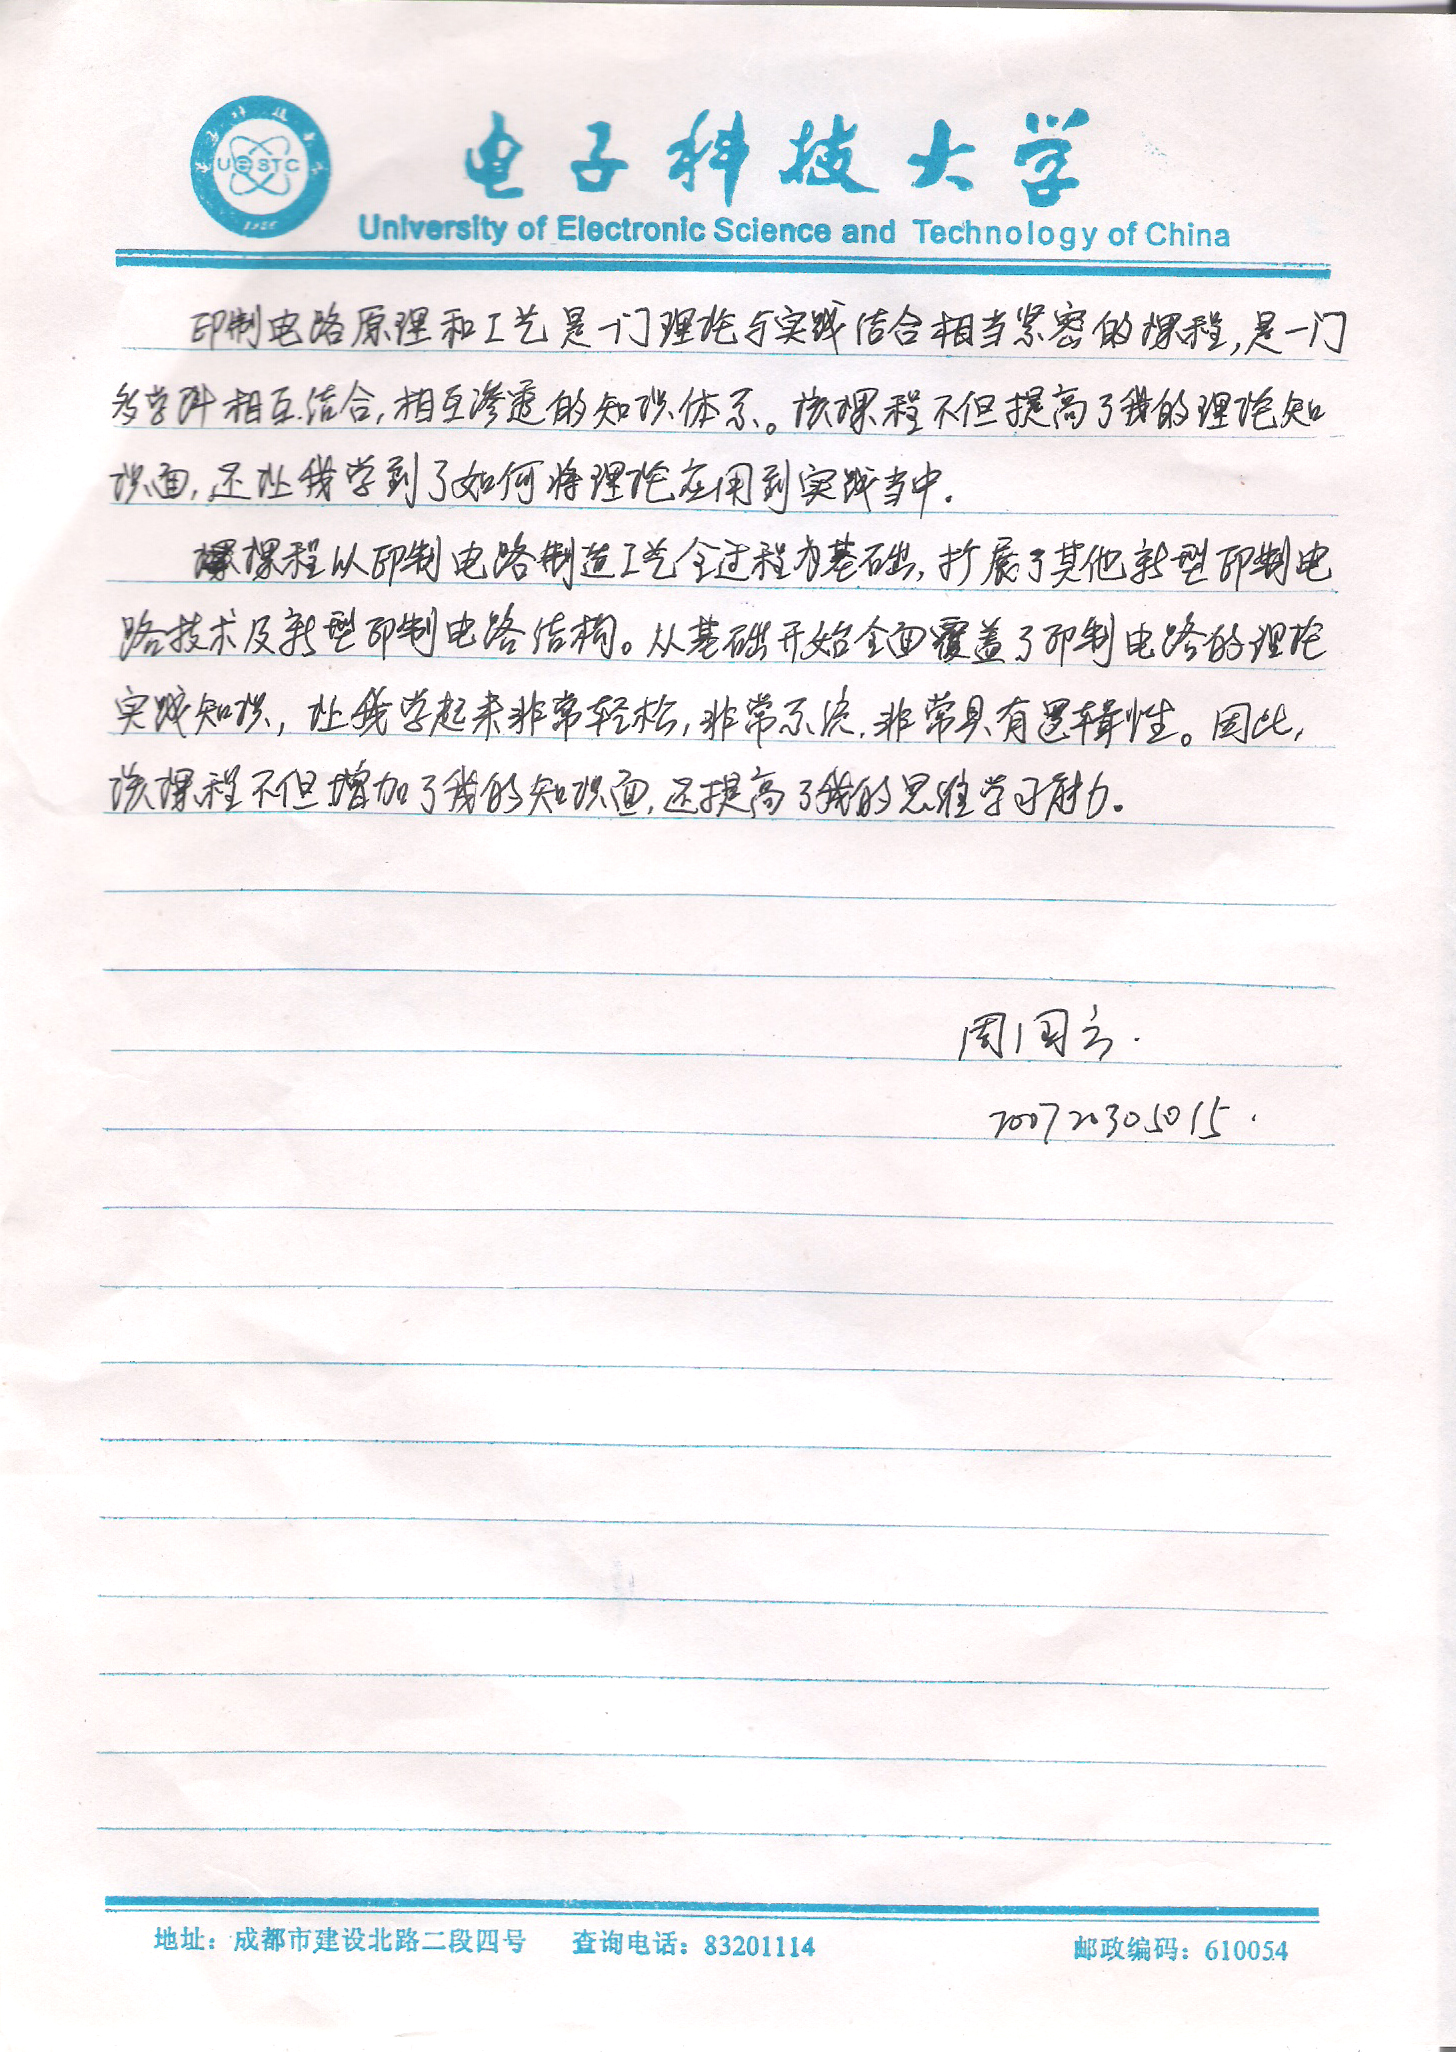 UESTC
1956
电子科技大学
University of Electronic Science and Technology of China
印制电路原理和工艺是一门理论与实践结合相当紧密的课程,是一门
多学科相互结合,相互渗透的知识体系。该课程不但提高了我的理论知
识面,还让我学到了如何将理论应用到实践当中.
课程以印制电路制造工艺全过程为基础,扩展了其他新型印制电
路技术及新型印制电路结构。从基础开始全面覆盖了印制电路的理论
实践知识,让我学起来非常轻松,非常系统.非常具有逻辑性。因此,
该课程不但增加了我的知识面,还提高了我的思维学习能力。
周国云.
200720305015.
地址：成都市建设北路二段四号 查询电话：83201114 邮政编码：610054